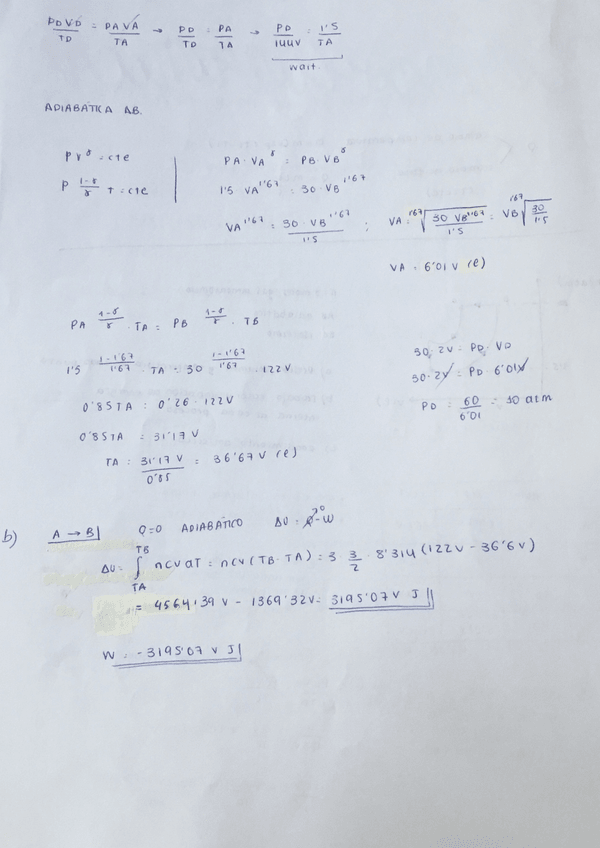 PDVD/TD = PAVA/TA → PD/TD = PA/TA → PD/144V = 1'5/TA
wait.
ADIABÁTICA AB.
P V^γ = cte
P^(1-γ/γ) T = cte
PA · VA^γ = PB · VB^γ
1'5 VA^1'67 = 30 · VB^1'67
VA^1'67 = 30 · VB^1'67 / 1'5 ; VA = ^1'67√(30 VB^1'67 / 1'5) = VB ^1'67√(30/1'5)
VA = 6'01 V (e)
PA^(1-γ/γ) · TA = PB^(1-γ/γ) · TB
1'5^(1-1'67/1'67) · TA = 30^(1-1'67/1'67) · 122V
0'85TA = 0'26 · 122V
0'85TA = 31'17 V
TA = 31'17 V / 0'85 = 36'67 V (e)
30 · 2V = PD · VD
30 · 2V = PD · 6'01V
PD = 60/6'01 = 10 atm
b) A → B Q=0 ADIABÁTICO ΔU = Q^0 - W
ΔU = ∫TA^TB ncv dT = ncv (TB - TA) = 3 · 3/2 · 8'314 (122V - 36'6V)
= 4564'39 V - 1369'32V = 3195'07 V J
W = -3195'07 V J